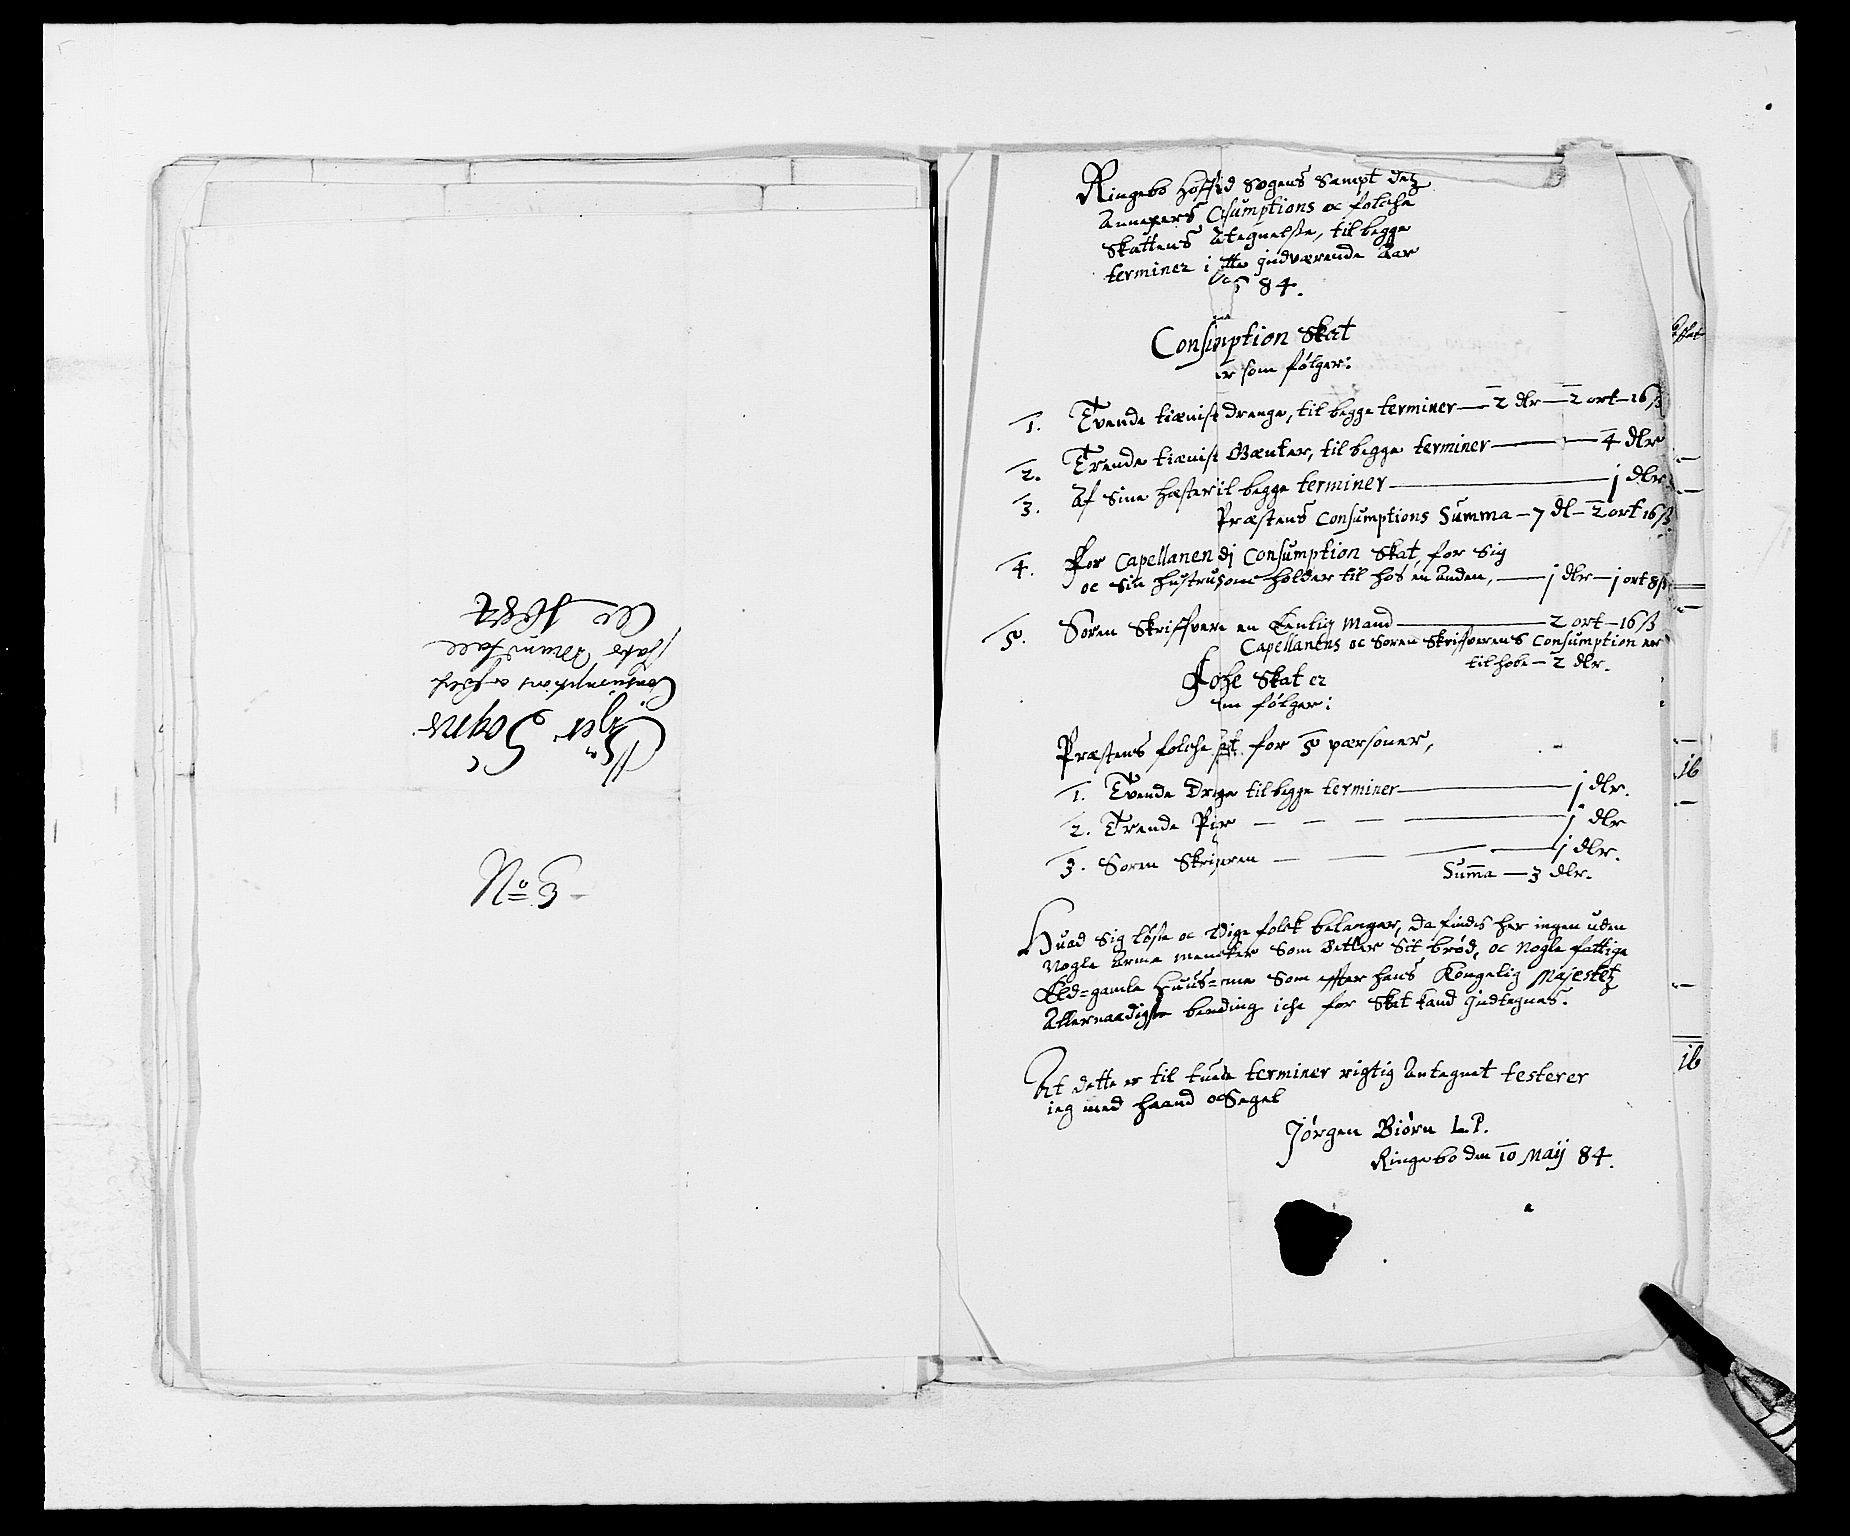 Øyer Sogns
Consumption og folch
skatt
No 3
Ringebo Hoffvid Sogens Sampt detz
Annexers Consumptions oc folche
Skattens Antegnelse, til begge
terminer i dette Indværende Aar
84.
Consumption Skat
er som følger:
1. Tvende tienist drenge, til begge terminer — 2 dlr — 2 ort — 16 ß
2. Trende tienist Gænter, til begge terminer — 4 dlr
3. Af Sine hæster til begge terminer — 1 dlr
Præstens Consumptions Summa — 7 dl — 2 ort 16 ß
4. For Capellanen dj Consumption Skat for Sig
oc Sin hustru som holder til hos en anden, — 1 dlr — 1 ort 8 ß
5. Søren Skriffvere en Eenlig Mand — 2 ort — 16 ß
Capellanens oc Søren Skriffverens Consumption er
tilhobe — 2 dlr.
Folche Skat er
som følger:
Præstens folche skat for 5 pærsoner,
1. Tvende Drenge til begge terminer — 1 dlr.
2. Trende Piger — 1 dlr
3. Søren Skriveren — 1 dlr.
Summa — 3 dlr.
Huad Sig løsse oc ledige folck belanger, da findis her ingen uden
Nogle arme mennisker Som Betler Sit brød, oc Nogle fattige
Eld=gamle Huus=arme Som effter hans Kongelig Majestetz
Allernaadigste beording iche for Skat kand Indtegnes.
At dette er til tuende terminer rigtig Antegnet testerer
ieg med haand oc Segel
Jørgen Biørn L.P.
Ringebo den 10 Maij 84.
16
16